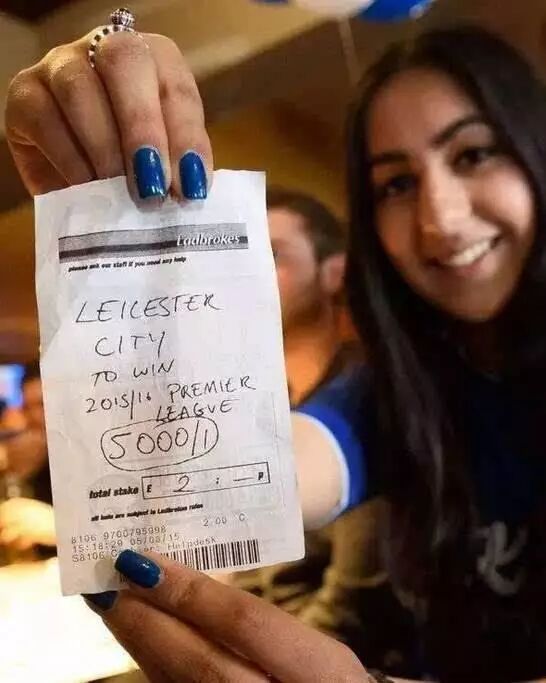 Ladbrokes
please ask our staff if you need any help
LEICESTER
CITY
TO WIN
2015/16 PREMIER
LEAGUE
5000/1
total stake £ 2 : — P
all bets are subject to Ladbrokes rules
2.00 C
8106 9700795998
15:18:20 05/08/15
S8106 Helpdesk